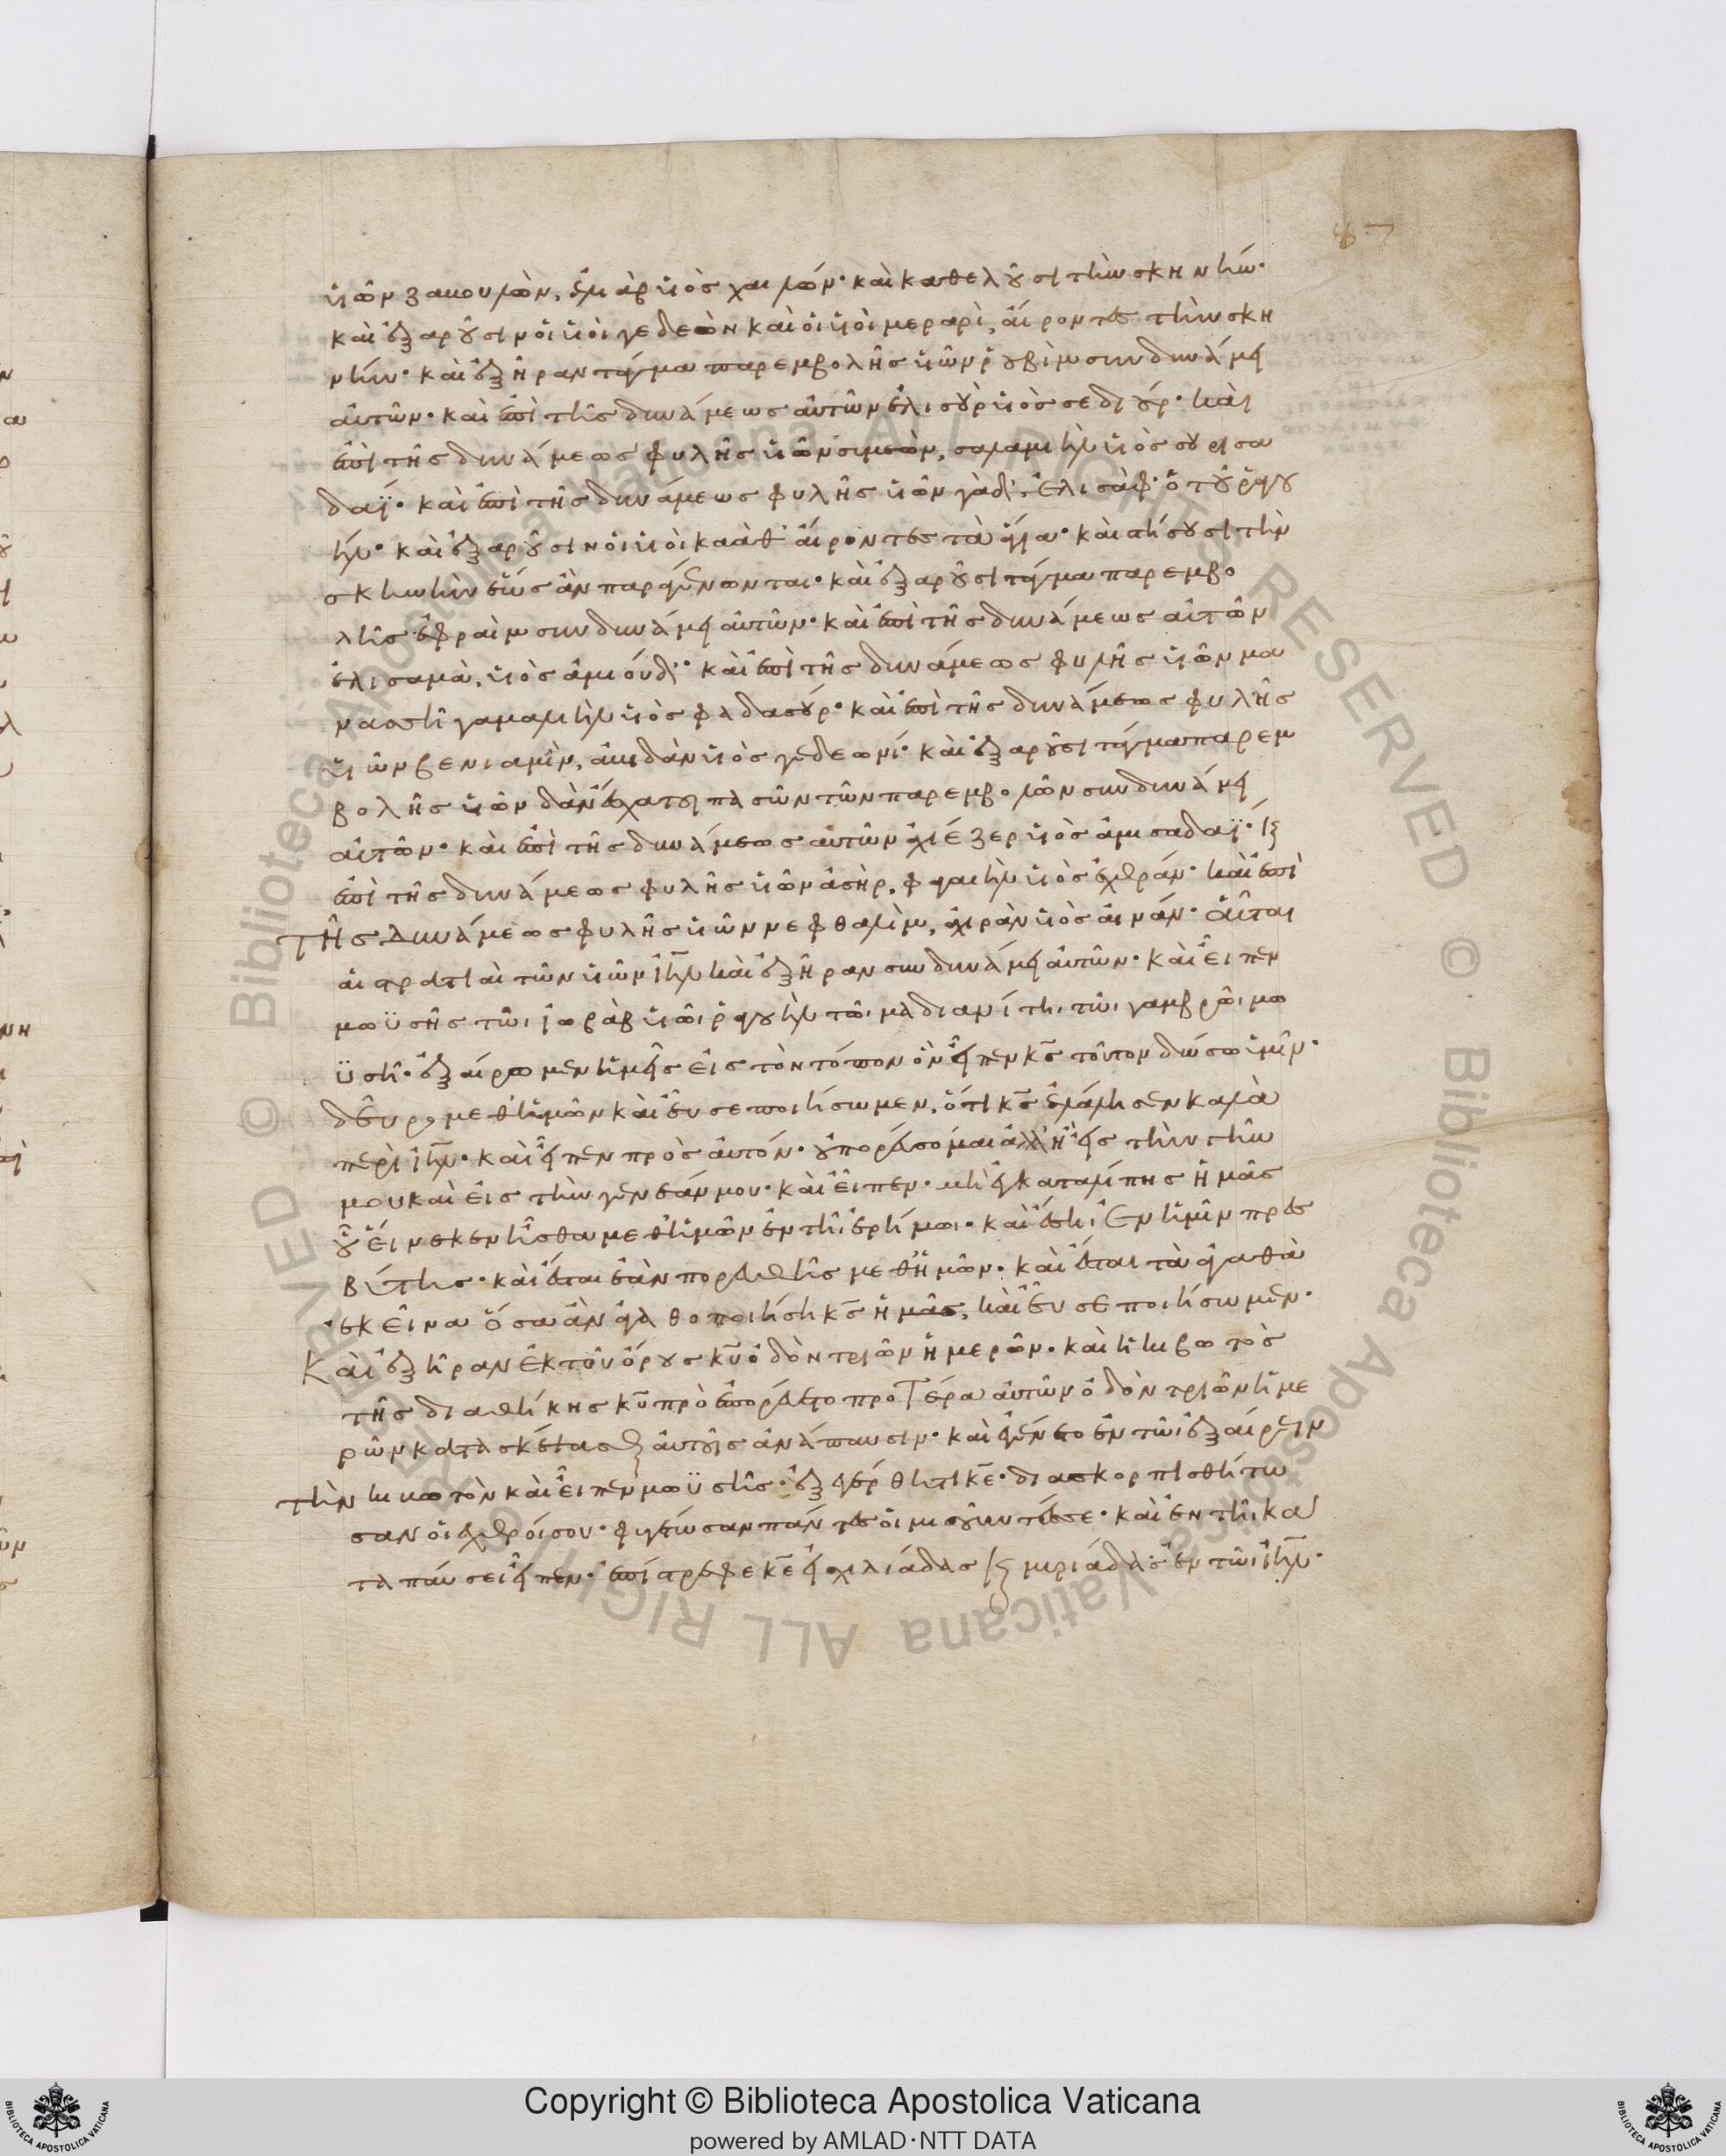 87
ϋἱῶν ζαβουλὼν, ἐλιὰβ ϋἱὸς χαιλών· καὶ καθελοῦσι τὴν σκηνήν·
καὶ ἐξαροῦσιν οἱ ϋἱοὶ γεδεὼν καὶ οἱ ϋἱοὶ μεραρὶ, αἴροντες τὴν σκη
νήν· καὶ ἐξῆραν τάγμα παρεμβολῆς ϋἱῶν ῥουβὶμ συν δυνάμει
αὐτῶν· καὶ ἐπὶ τῆς δυνάμεως αὐτῶν ἐλισοὺρ ϋἱὸς σεδιούρ· καὶ
ἐπὶ τῆς δυνάμεως φυλῆς ϋἱῶν συμεὼν, σαλαμιὴλ ϋἱὸς σουρισα
δαΐ· καὶ ἐπὶ τῆς δυνάμεως φυλῆς ϋἱῶν γὰδ· ἐλισὰφ· ὁ τοῦ ῥαγου
ήλ· καὶ ἐξαροῦσιν οἱ ϋἱοὶ καὰθ αἴροντες τὰ ἅγια· καὶ στήσουσι τὴν
σκηνὴν ἕως ἂν παραγένωνται· καὶ ἐξαροῦσι τάγμα παρεμβο
λῆς ἐφραὶμ συν δυνάμει αὐτῶν· καὶ ἐπὶ τῆς δυνάμεως αὐτῶν
ἐλισαμὰ, ϋἱὸς ἀμιούδ· καὶ ἐπὶ τῆς δυνάμεως φυλῆς ϋἱῶν μα
νασσῆ γαμαλιὴλ ϋἱὸς φαδασούρ· καὶ ἐπὶ τῆς δυνάμεως φυλῆς
ϋἱῶν βενιαμὶν, ἀβιδὰν ϋἱὸς γεδεωνί· καὶ ἐξαροῦσι τάγμα παρεμ
βολῆς ϋἱῶν δὰν ἔσχατοι πασῶν τῶν παρεμβολῶν συν δυνάμει
αὐτῶν· καὶ ἐπὶ τῆς δυνάμεως αὐτῶν ἀχιέζερ ϋἱὸς ἀμισαδαΐ· κ
ἐπὶ τῆς δυνάμεως φυλῆς ϋἱῶν ἀσὴρ, φαγαιὴλ ϋἱὸς ἐχθράν· καὶ ἐπὶ
τῆς δυνάμεως φυλῆς ϋἱῶν νεφθαλὶμ, ἀχιρὰν ϋἱὸς αἰνάν· αὗται
αἱ στρατιαὶ τῶν ϋἱῶν ιηλ καὶ ἐξῆραν συν δυνάμει αὐτῶν· καὶ εἶπεν
μωϋσῆς τῶι ἰωβὰβ ϋἱῶι ῥαγουὴλ τῶι μαδιανίτηι τῶι γαμβρῶι μω
ϋσῆ· ἐξαίρωμεν ἡμεῖς εἰς τὸν τόπον ὃν εἶπεν κς τοῦτον δώσω ὑμῖν·
δεῦρο μεθ ἡμῶν καὶ εὖ σε ποιήσωμεν, ὅτι κς ἐλάλησεν καλὰ
περὶ ιηλ· καὶ εἶπεν πρὸς αὐτόν· οὐ πορεύσομαι ἀλλ ἢ εἰς τὴν γῆν
μου καὶ εἰς τὴν γενεάν μου· καὶ εἶπεν· μὴ ἐγκαταλίπης ἡμᾶς
οὗ εἵνεκεν ἦσθα μεθ ἡμῶν ἐν τῆι ἐρήμωι· καὶ ἔσηι ἐν ἡμῖν πρεσ
βύτης· καὶ ἔσται ἐὰν πορευθῆς μεθ ἡμῶν· καὶ ἔσται τὰ ἀγαθὰ
ἐκεῖνα ὅσα ἂν ἀγαθοποιήσηι κς ἡμᾶς, καὶ εὖ σε ποιήσωμεν·
Καὶ ἐξῆραν ἐκ τοῦ ὄρους κυ ὁδὸν τριῶν ἡμερῶν· καὶ ἡ κιβωτὸς
τῆς διαθήκης κυ προεπορεύετο προτέρα αὐτῶν ὁδὸν τριῶν ἡμε
ρῶν κατασκέψασθαι αὐτοῖς ἀνάπαυσιν· καὶ ἐγένετο ἐν τῶι ἐξαίρειν
τὴν κιβωτὸν καὶ εἶπεν μωϋσῆς· ἐξεγέρθητι κε· διασκορπισθήτω
σαν οἱ ἐχθροί σου· φυγέτωσαν πάντες οἱ μισοῦντές σε· καὶ ἐν τῆι κα
ταπαύσει εἶπεν· ἐπίστρεφε κε χιλιάδας κ μυριάδας ἐν τῶι ιηλ·
Copyright © Biblioteca Apostolica Vaticana
powered by AMLAD·NTT DATA